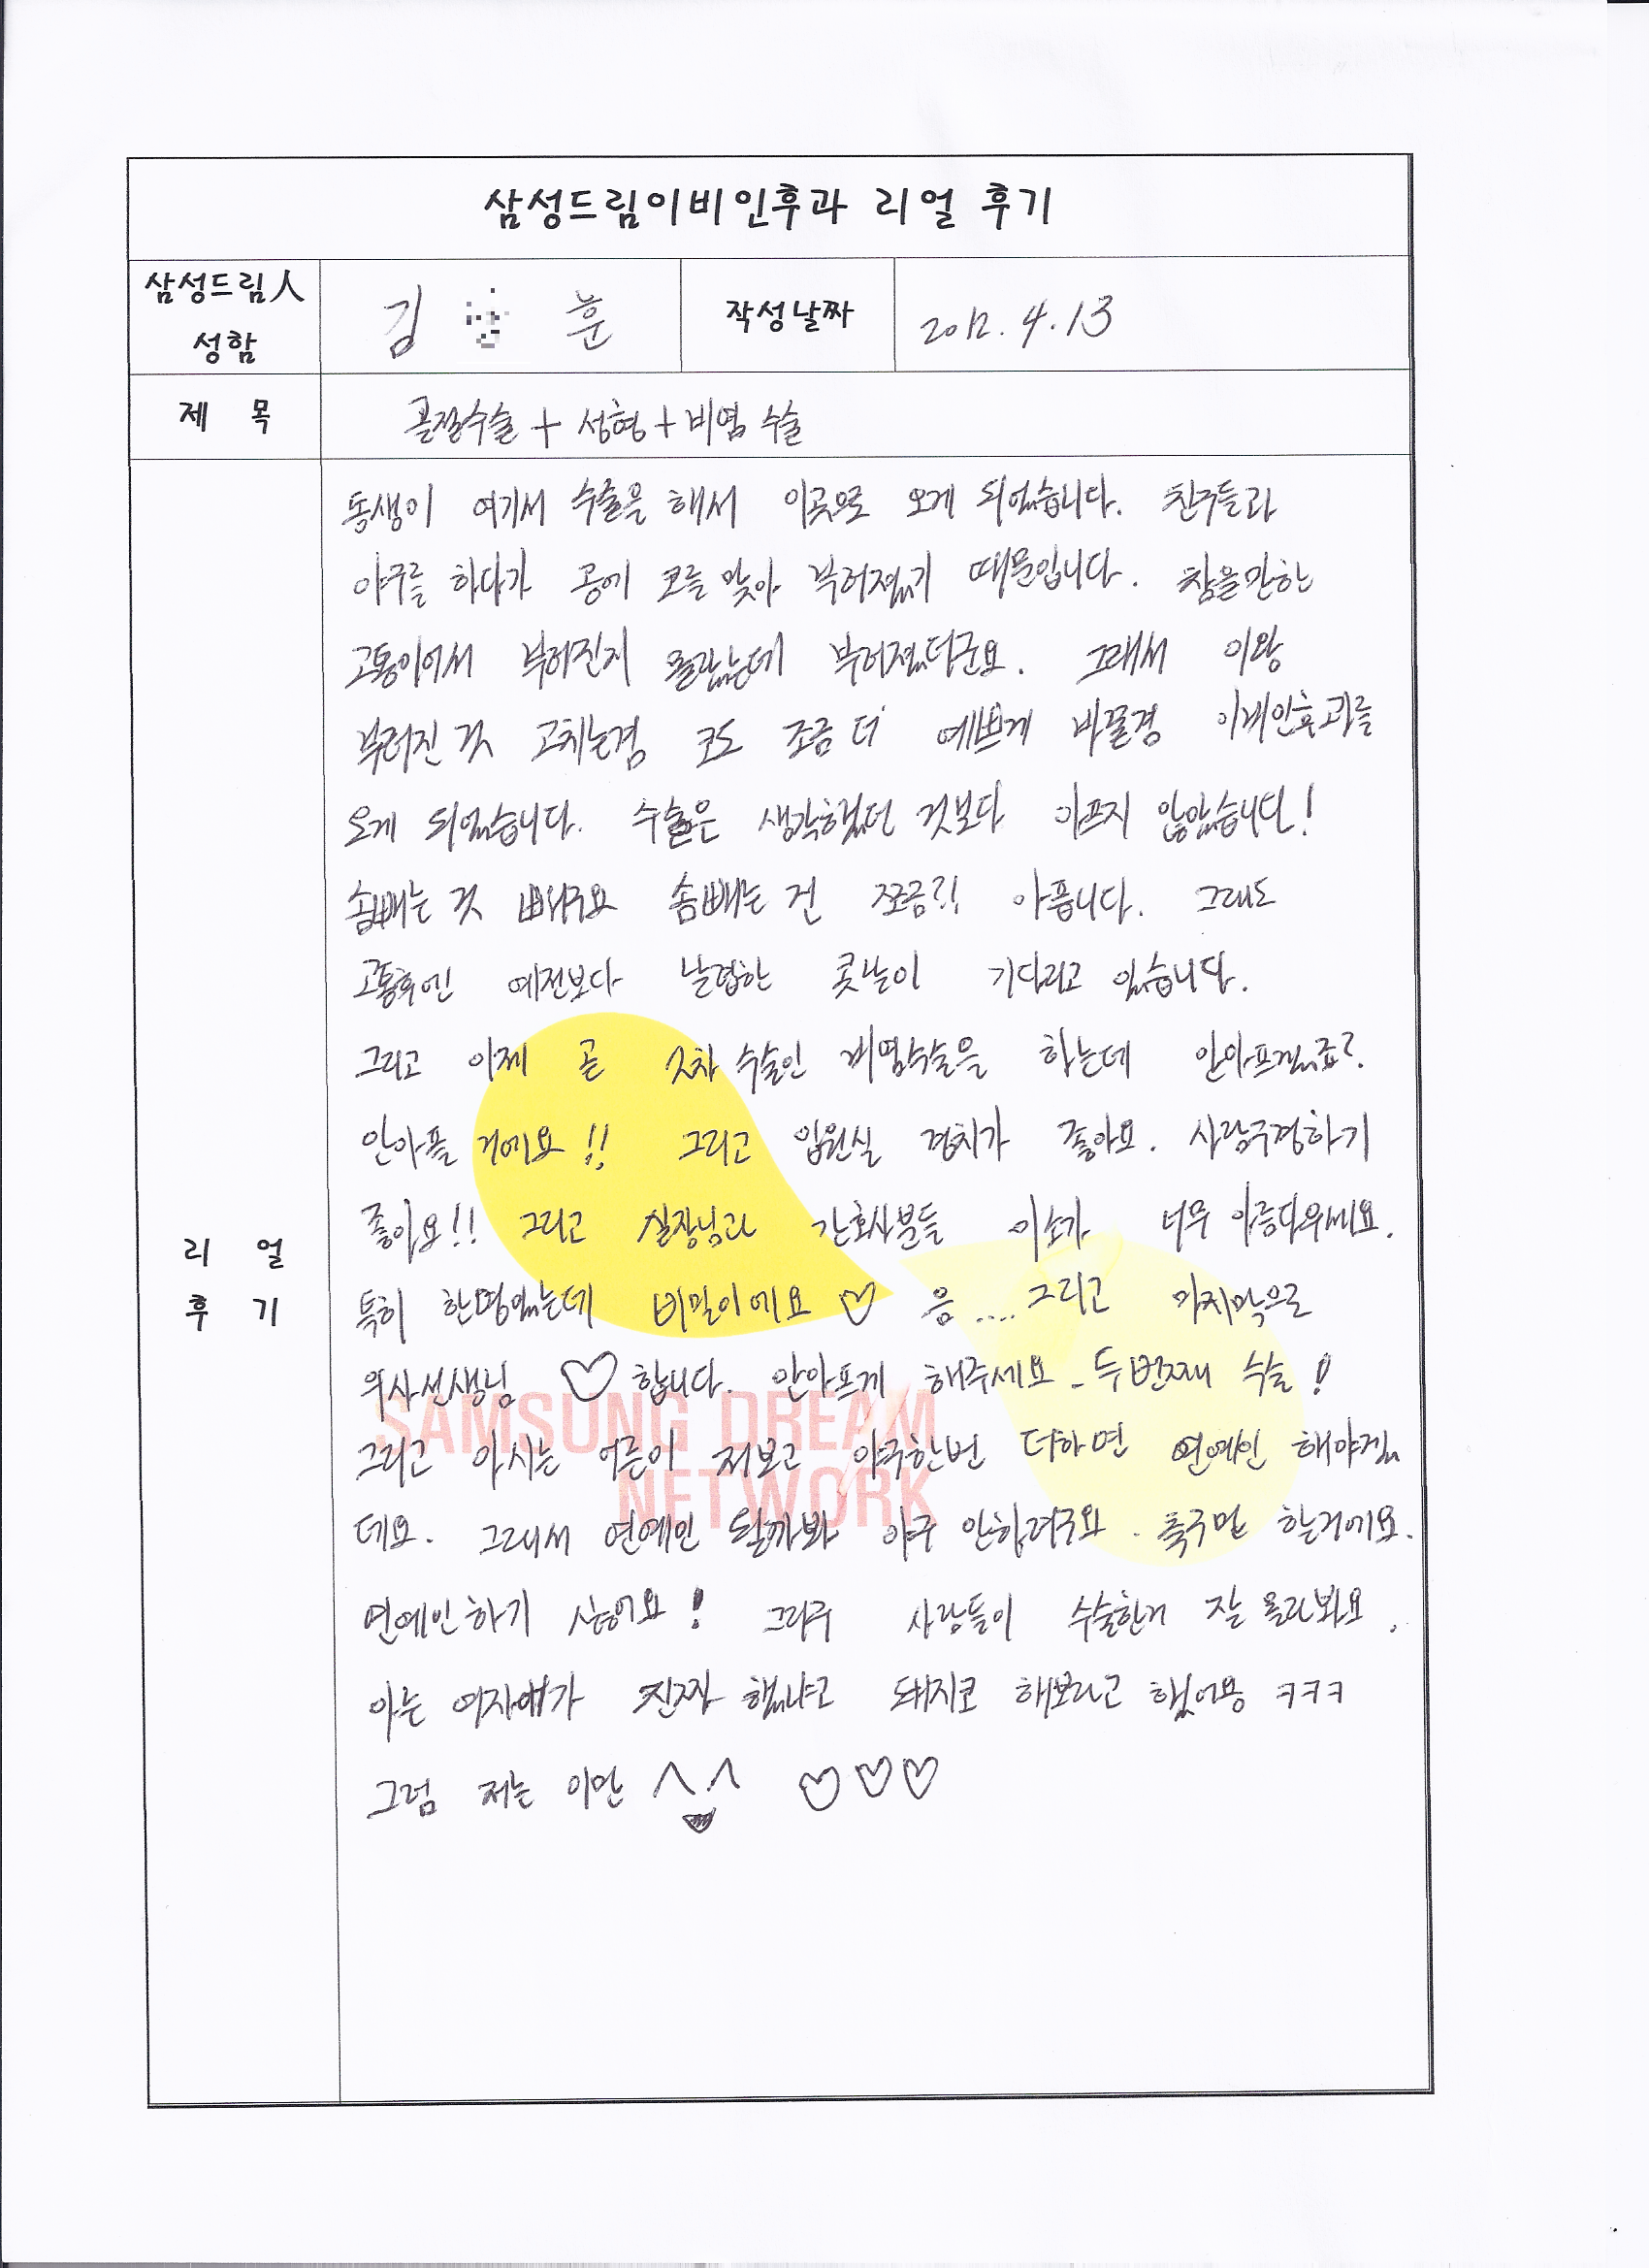 삼성드림이비인후과 리얼 후기
삼성드림人 성함
김 훈
작성날짜
2012. 4. 13
제 목
골절수술 + 성형 + 비염 수술
리 얼 후 기
동생이 여기서 수술을 해서 이곳으로 오게 되었습니다. 친구들과
야구를 하다가 공에 코를 맞아 부러졌기 때문입니다. 참을만한
고통이어서 부러진지 몰랐는데 부러졌더군요. 그래서 이왕
부러진 것 고치는겸 코도 조금 더 예쁘게 바꿀겸 이비인후과를
오게 되었습니다. 수술은 생각했던 것보다 아프지 않았습니다!
솜빼는 것 빼구요 솜빼는 건 쪼금?! 아픕니다. 그래도
고통후엔 예전보다 날렵한 콧날이 기다리고 있습니다.
그리고 이제 곧 2차 수술인 비염수술을 하는데 안아프겠죠?
안아플 거에요!! 그리고 입원실 경치가 좋아요. 사람구경하기
좋아요!! 그리고 실장님과 간호사분들 미소가 너무 아름다우세요.
특히 한명있는데 비밀이에요 ♡ 음.... 그리고 마지막으로
의사선생님 ♡합니다. 안아프게 해주세요 - 두번째 수술!
그리고 아시는 어른이 저보고 야구한번 더하면 연예인 해야겠
데요. 그래서 연예인 될까봐 야구 안하려구요. 축구만 할거에요.
연예인하기 싫어요! 그리구 사람들이 수술한거 잘 몰라봐요.
아는 여자애가 진짜 했냐고 돼지코 해보라고 했어용 ㅋㅋㅋ
그럼 저는 이만 ^.^ ♡♡♡
SAMSUNG DREAM
NETWORK